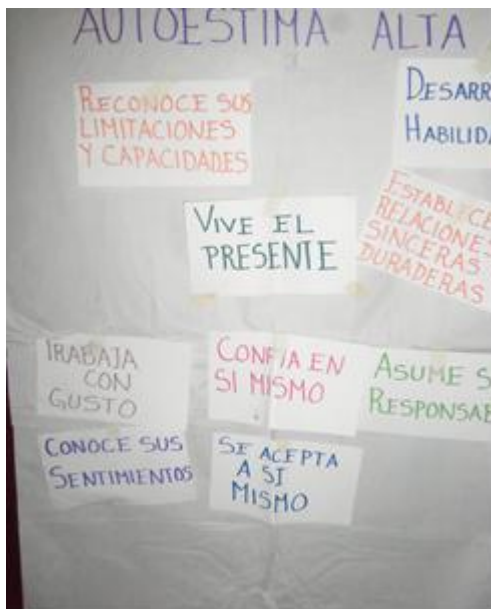 AUTOESTIMA ALTA
RECONOCE SUS
LIMITACIONES
Y CAPACIDADES
DESARR
HABILIDA
VIVE EL
PRESENTE
ESTABLECE
RELACIONES
SINCERAS
DURADERAS
TRABAJA
CON
GUSTO
CONFIA EN
SI MISMO
ASUME S
RESPONSAB
CONOCE SUS
SENTIMIENTOS
SE ACEPTA
A SI
MISMO